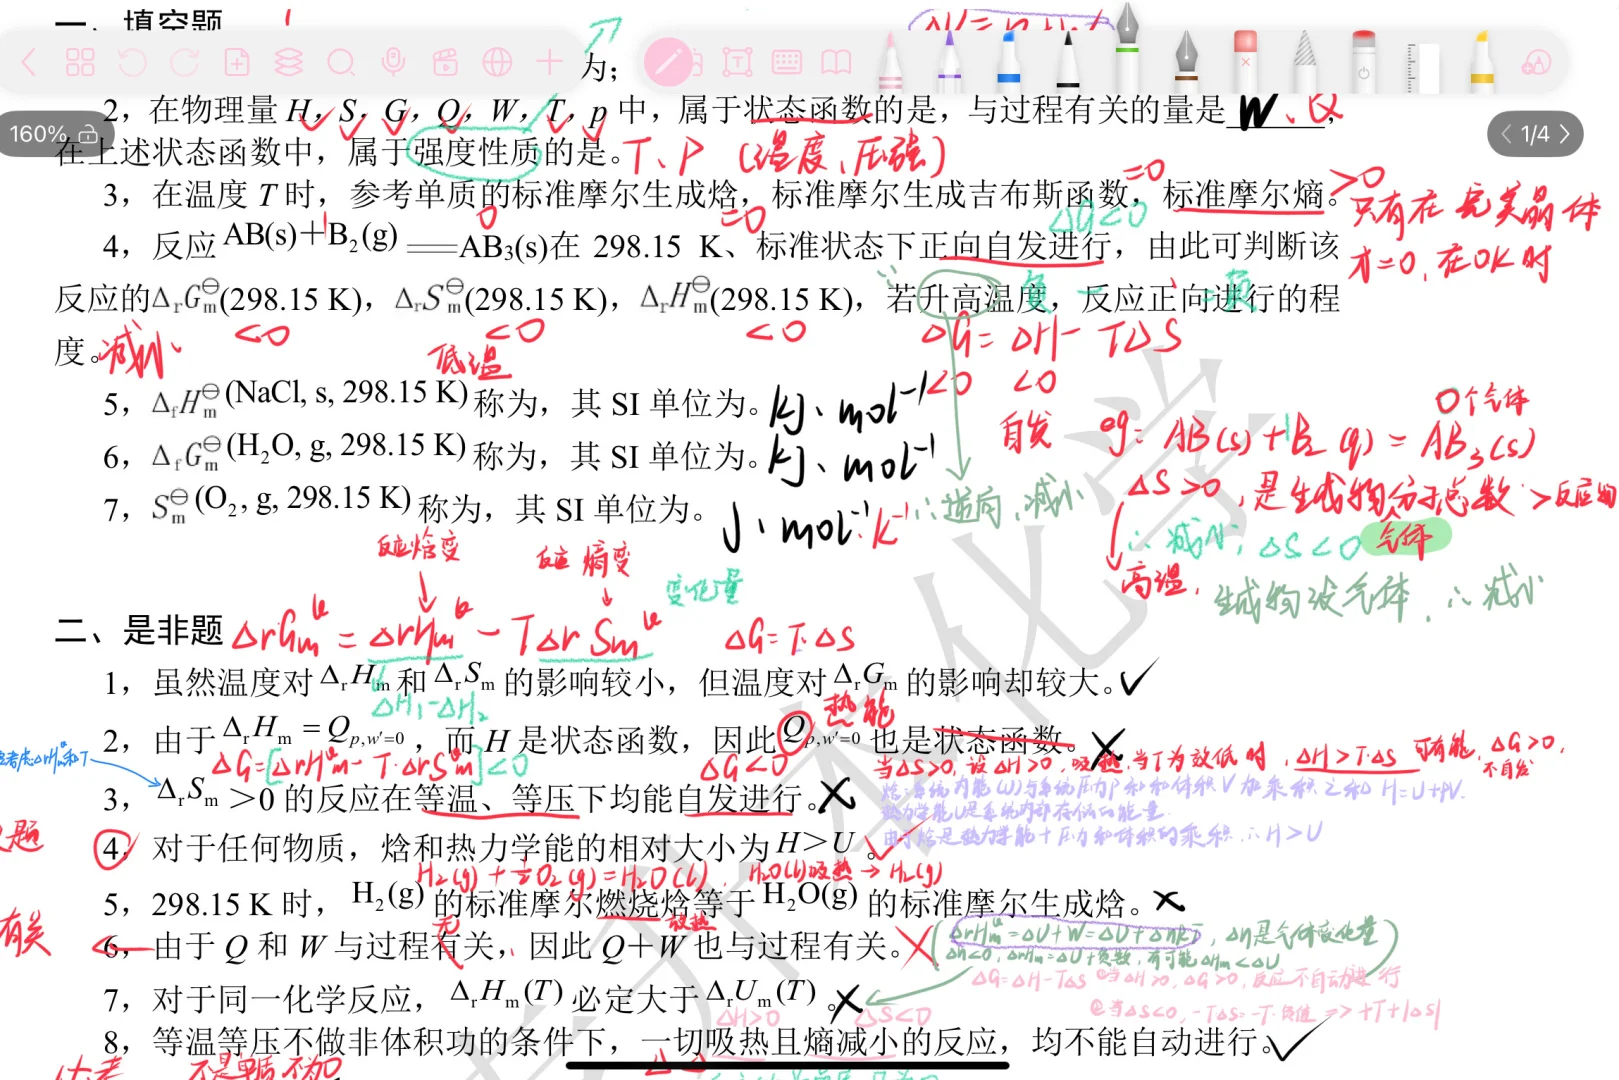 一、填空题
为；
160%
1/4
2，在物理量 H，S，G，Q，W，T，p 中，属于状态函数的是，与过程有关的量是 W、Q；
在上述状态函数中，属于强度性质的是。T、P（温度、压强）
3，在温度 T 时，参考单质的标准摩尔生成焓，标准摩尔生成吉布斯函数，标准摩尔熵。
0 =0 =0 >0
只有在完美晶体
才=0，在0K时
ΔG<0
4，反应 AB(s)+B₂(g) ══AB₃(s)在 298.15 K、标准状态下正向自发进行，由此可判断该
反应的ΔrGm⊖(298.15 K)，ΔrSm⊖(298.15 K)，ΔrHm⊖(298.15 K)，若升高温度，反应正向进行的程
度。减小
<0 <0 <0
低温
ΔG=ΔH-TΔS
<0 <0
自发
5，ΔfHm⊖(NaCl, s, 298.15 K)称为，其 SI 单位为。kJ·mol⁻¹
6，ΔfGm⊖(H₂O, g, 298.15 K)称为，其 SI 单位为。kJ·mol⁻¹
7，Sm⊖(O₂, g, 298.15 K)称为，其 SI 单位为。J·mol⁻¹·k⁻¹
∴逆向，减小
0个气体
eg: AB(s)+B₂(g)=AB₃(s)
ΔS>0，是生成物分子总数>反应物
气体
∴减小，ΔS<0
高温，
生成物没气体，∴减小
反应焓变
反应熵变
变化量
二、是非题 ΔrGm=ΔrHm-TΔrSm ΔG=T·ΔS
1，虽然温度对ΔrHm和ΔrSm的影响较小，但温度对ΔrGm的影响却较大。✓
ΔH₁-ΔH₂
热能
2，由于ΔrHm=Qp,w'=0，而 H 是状态函数，因此Qp,w'=0也是状态函数。×
ΔG=[ΔrHm-T·ΔrSm]<0
ΔG<0
当ΔS>0，设ΔH>0，吸热，当T为较低时，ΔH>T·ΔS 可有能，ΔG>0，
不自发
3，ΔrSm>0的反应在等温、等压下均能自发进行。×
焓：系统内能(U)与系统压力p和体积V加乘积之和 H=U+pV.
热力学能U是系统内部存储的能量.
由于焓是热力学能+压力和体积的乘积，∴H>U
4，对于任何物质，焓和热力学能的相对大小为H>U。✓
H₂(g)+½O₂(g)=H₂O(l)，H₂O(l)吸热→H₂(g)
5，298.15 K 时，H₂(g)的标准摩尔燃烧焓等于H₂O(g)的标准摩尔生成焓。×
无
放热
有关
6，由于 Q 和 W 与过程有关，因此 Q+W 也与过程有关。×
(ΔrHm=ΔU+W=ΔU+ΔnRT，Δn是气体变化量)
Δn<0，ΔrHm=ΔU+负数，有可能ΔHm<ΔU
7，对于同一化学反应，ΔrHm(T)必定大于ΔrUm(T)。×
ΔG=ΔH-TΔS ①当ΔH>0，ΔG>0，反应不自动进行
②当ΔS<0，-TΔS=-T·负值 => +T+|ΔS|
ΔH>0 ΔS<0
8，等温等压不做非体积功的条件下，一切吸热且熵减小的反应，均不能自动进行。✓